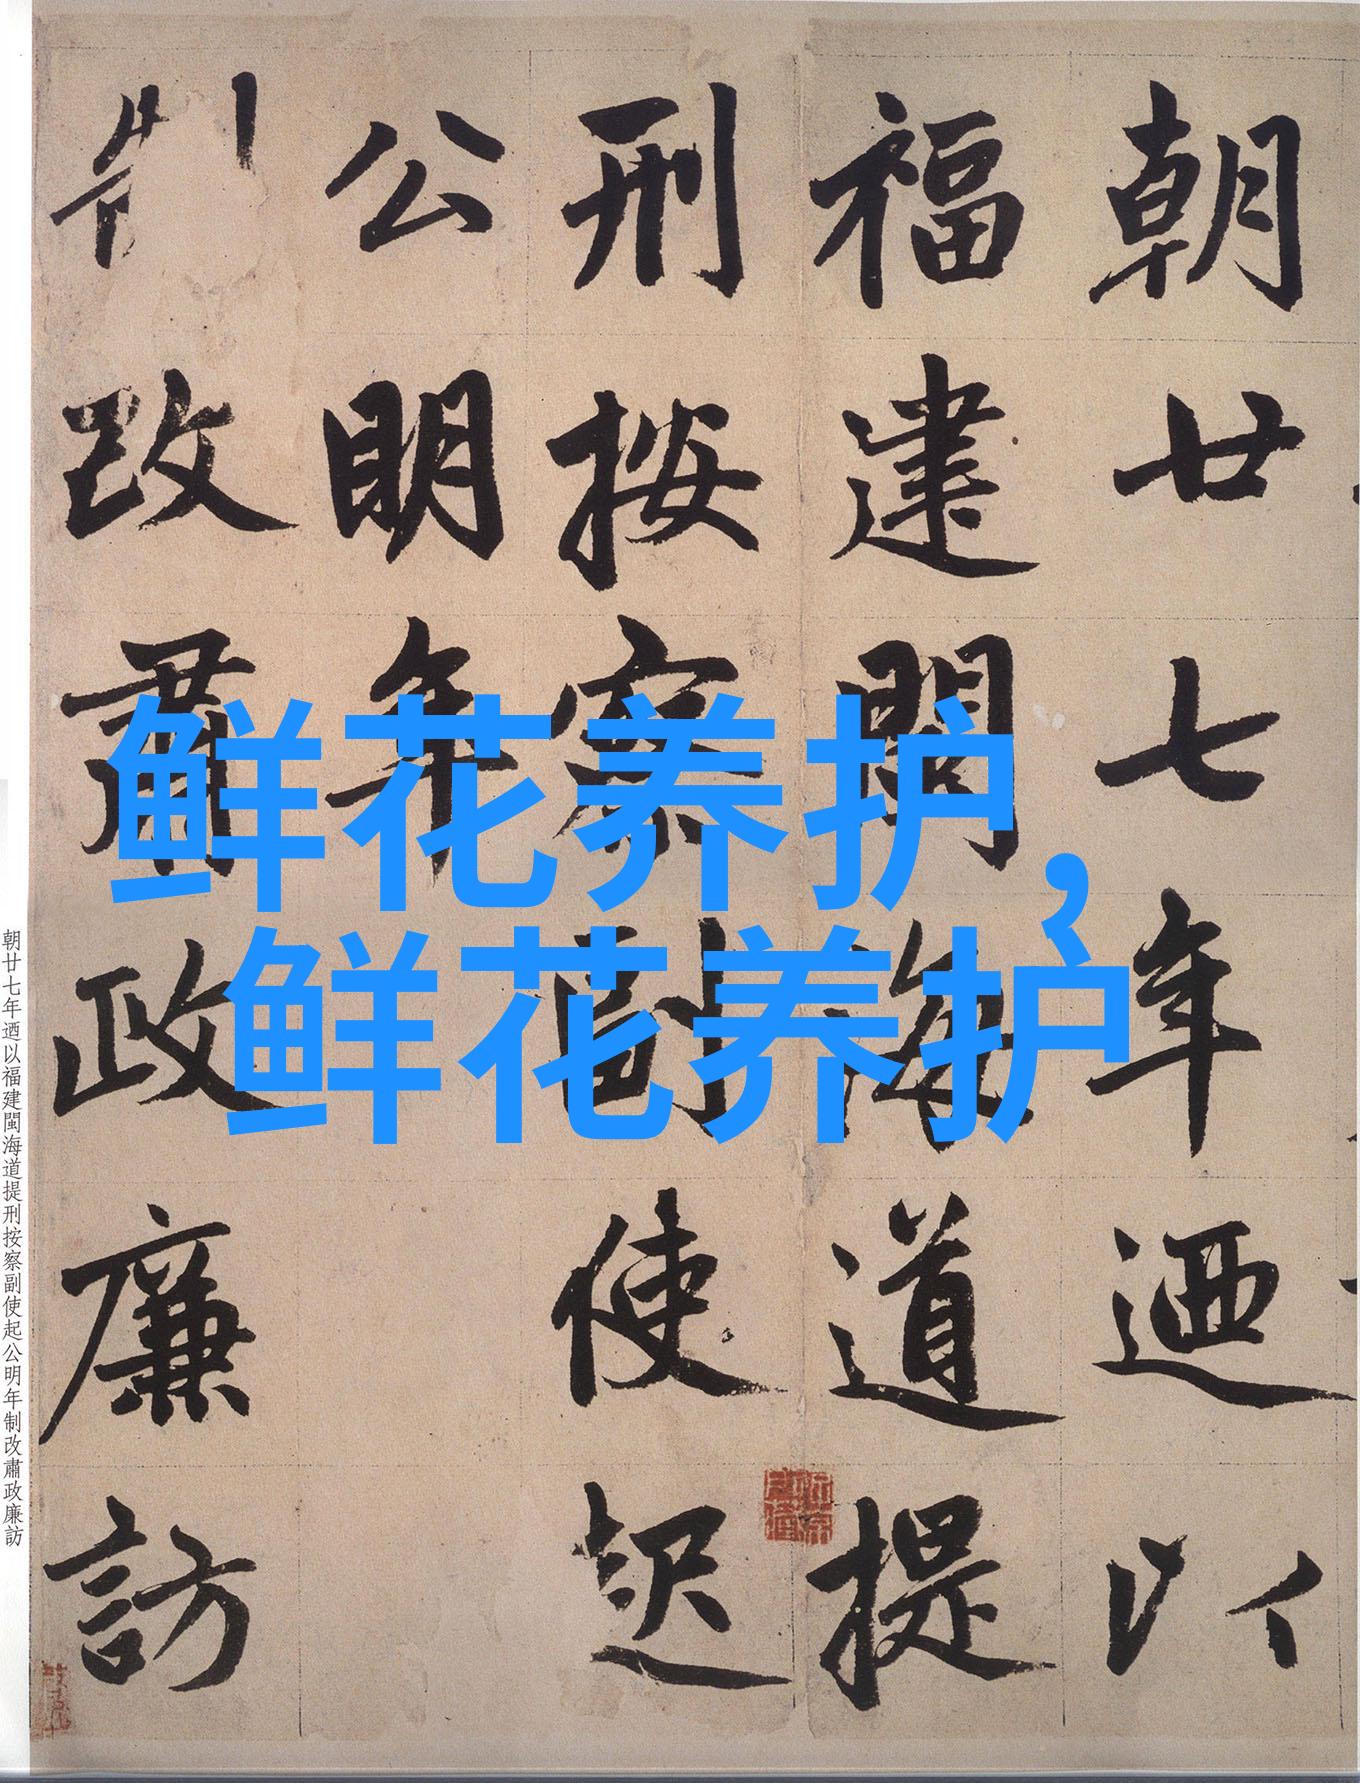 朝廿七年迺以
福建閩海道提
刑按察副使起
公明年
制改肅政廉訪
鲜花养护，
鲜花养护
朝廿七年迺以福建閩海道提刑按察副使起公明年制改肅政廉訪